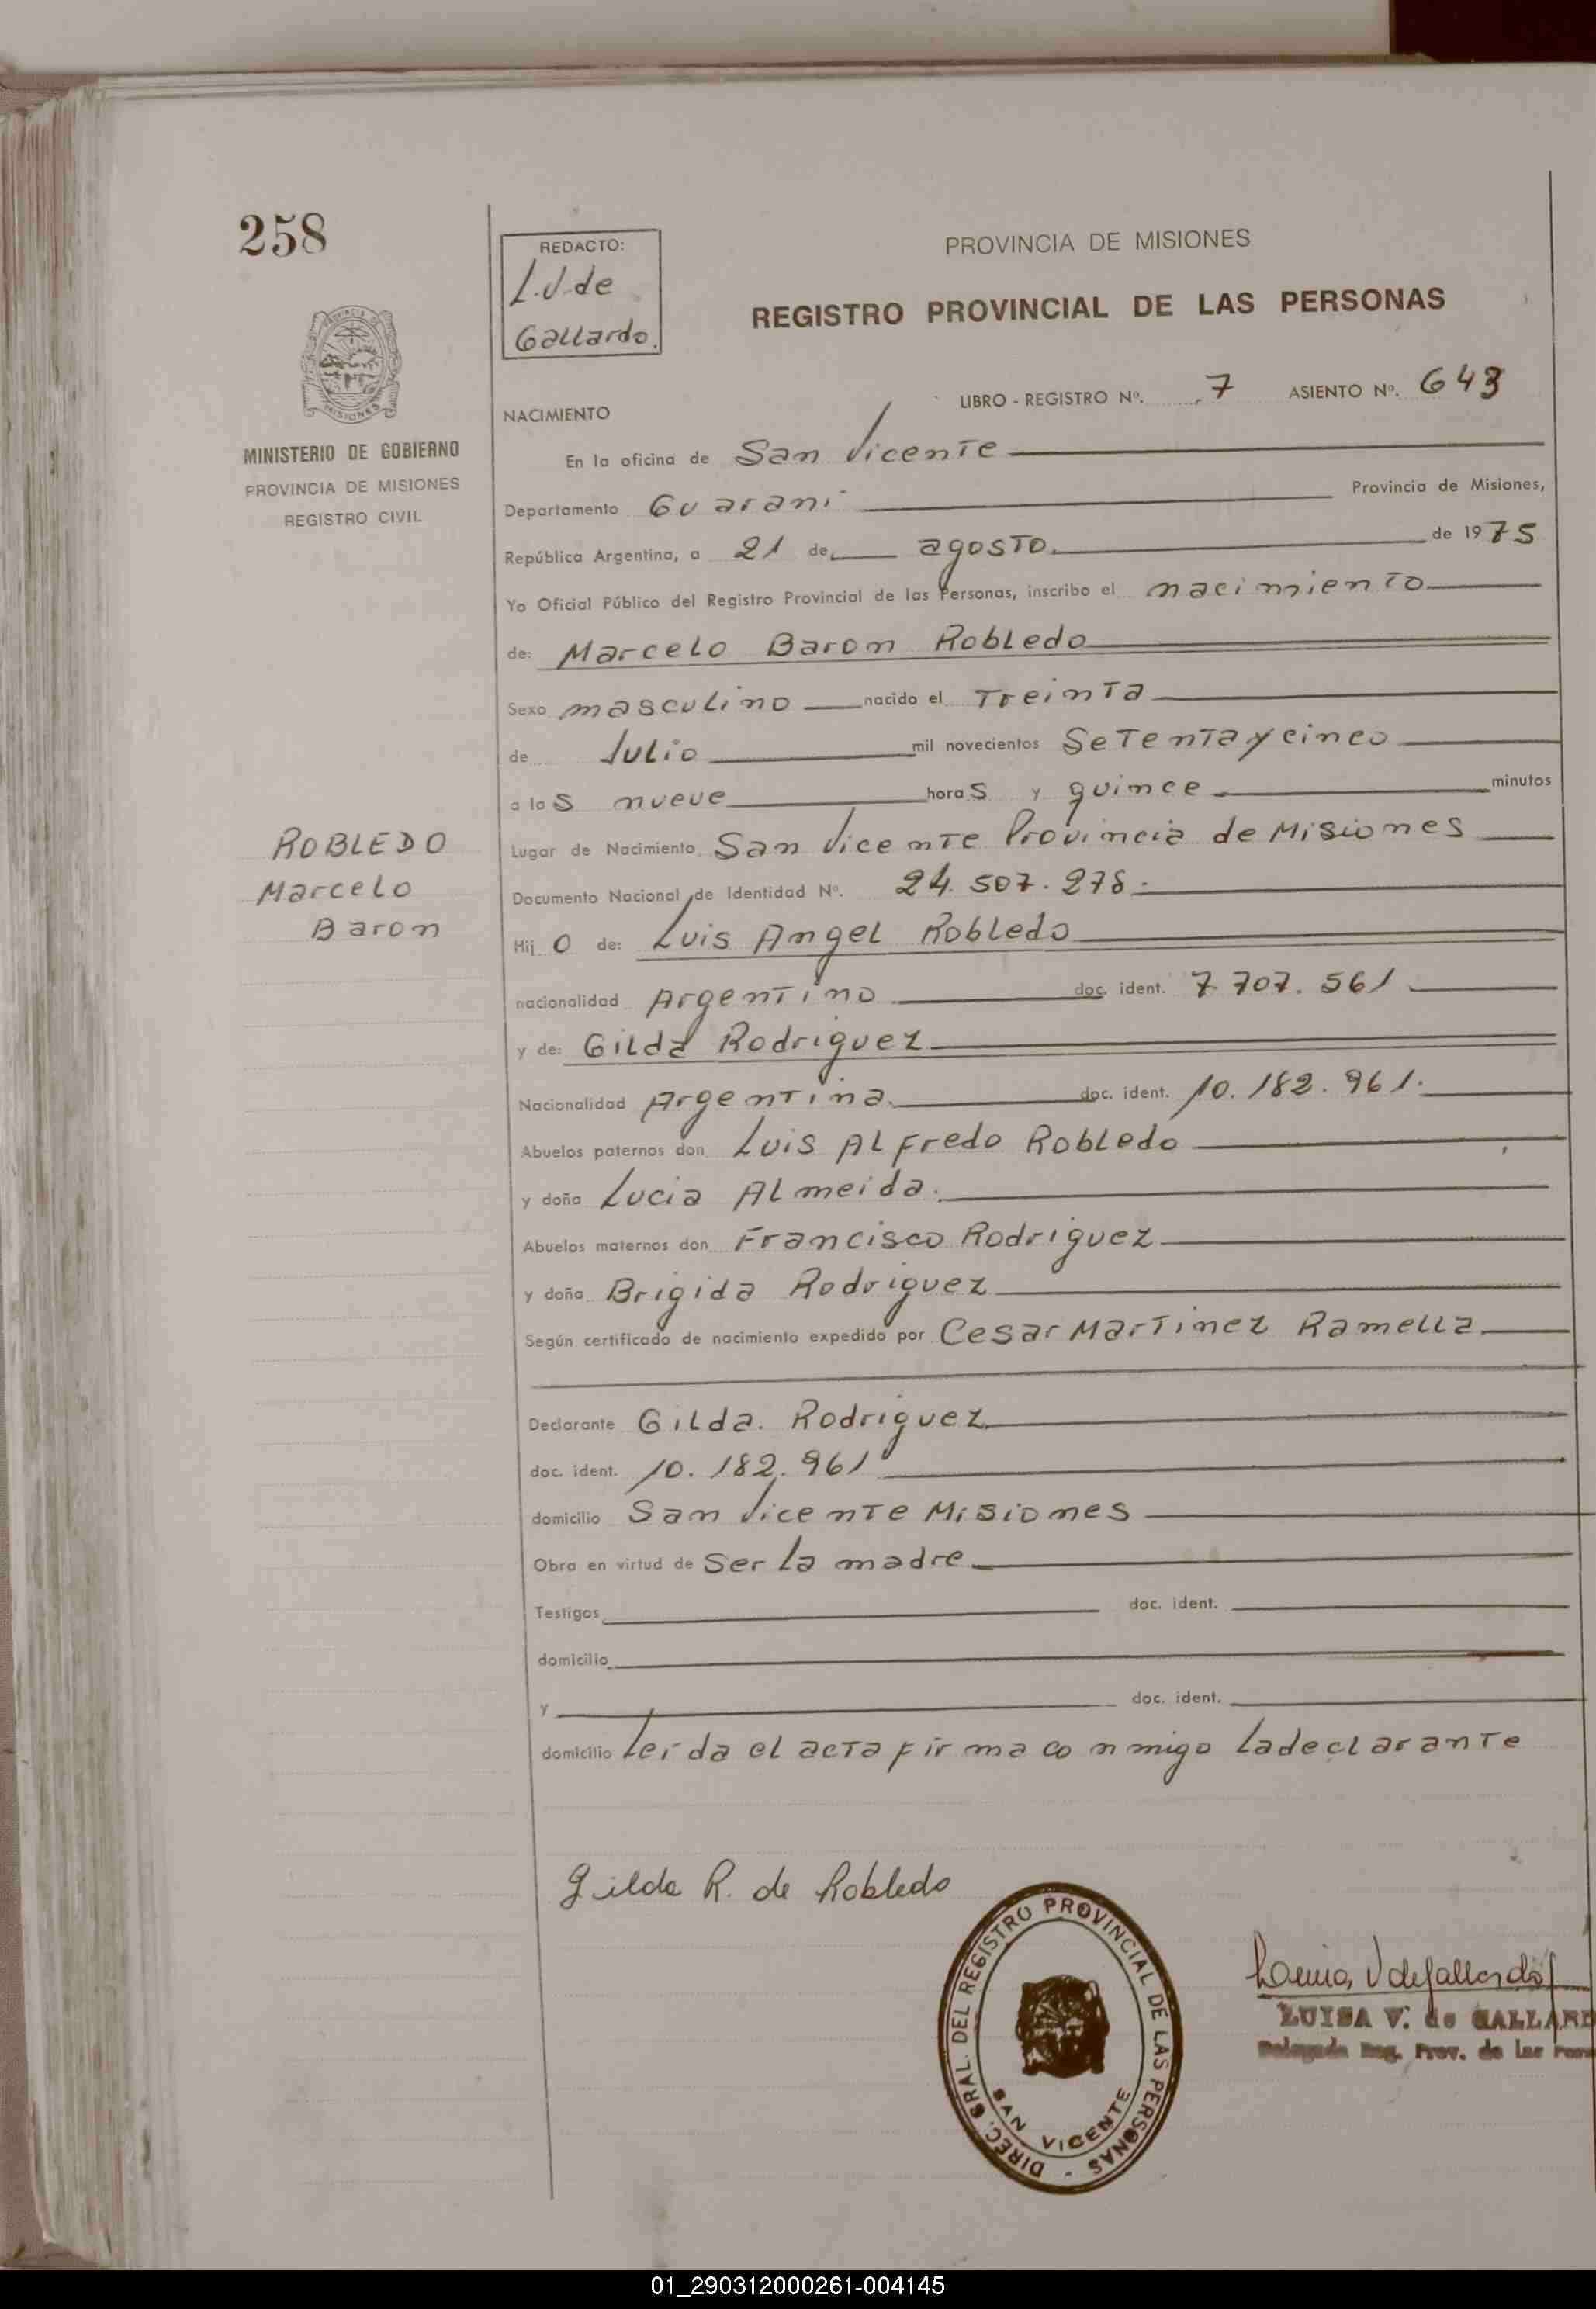 258
REDACTO:
L.V. de
Gallardo.
PROVINCIA DE MISIONES
REGISTRO PROVINCIAL DE LAS PERSONAS
PROVINCIA DE MISIONES
LIBRO - REGISTRO Nº. 7 ASIENTO Nº. 643
NACIMIENTO
MINISTERIO DE GOBIERNO
PROVINCIA DE MISIONES
REGISTRO CIVIL
En la oficina de San Vicente
Departamento Guarani Provincia de Misiones,
República Argentina, a 21 de agosto. de 1975
Yo Oficial Público del Registro Provincial de las Personas, inscribo el nacimiento
de: Marcelo Baron Robledo
Sexo masculino nacido el Treinta
de Julio mil novecientos Setenta y cinco
a las nueve horas y quince minutos
Lugar de Nacimiento San Vicente Provincia de Misiones
ROBLEDO
Marcelo
Baron
Documento Nacional de Identidad Nº. 24.507.278.
Hijo de: Luis Angel Robledo
nacionalidad Argentino doc. ident. 7.707.561
y de: Gilda Rodriguez
Nacionalidad Argentina. doc. ident. 10.182.961.
Abuelos paternos don Luis Alfredo Robledo
y doña Lucia Almeida.
Abuelos maternos don Francisco Rodriguez
y doña Brigida Rodriguez
Según certificado de nacimiento expedido por Cesar Martinez Ramella
Declarante Gilda. Rodriguez
doc. ident. 10.182.961
domicilio San Vicente Misiones
Obra en virtud de Ser la madre
Testigos doc. ident.
domicilio
y doc. ident.
domicilio Leida el acta firma conmigo la declarante
Gilda R. de Robledo
DIREC. GRAL. DEL REGISTRO PROVINCIAL DE LAS PERSONAS -
SAN VICENTE
Luisa V de Gallardo
LUISA V. de GALLARD
Delegada Reg. Prov. de las Pers
01_290312000261-004145